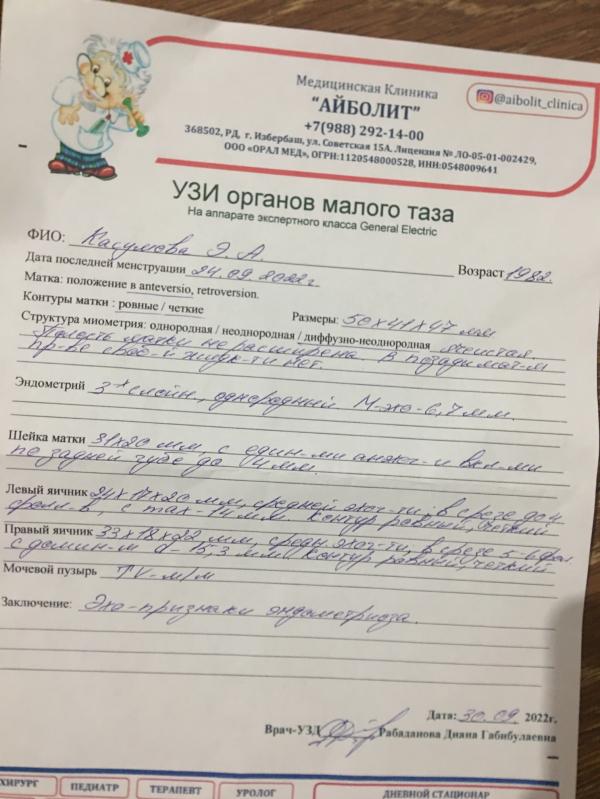 Медицинская Клиника
"АЙБОЛИТ"
@aibolit_clinica
+7(988) 292-14-00
368502, РД, г. Избербаш, ул. Советская 15А. Лицензия № ЛО-05-01-002429,
ООО «ОРАЛ МЕД», ОГРН:1120548000528, ИНН:0548009641
УЗИ органов малого таза
На аппарате экспертного класса General Electric
ФИО: Касумова Э. А. Возраст 1982.
Дата последней менструации 24.09.2022г
Матка: положение в anteversio, retroversion.
Контуры матки : ровные / четкие Размеры: 50х41х47 мм
Структура миометрия: однородная / неоднородная / диффузно-неоднородная ячеистая.
Полость матки не расширена. В позадимат-м
пр-ве своб-й жидк-ти нет.
Эндометрий 3-х слойн., однородный. М-эхо-6,7мм.
Шейка матки 31х20 мм, с един-ми анэхог-и вкл-ми
по задней губе до 4мм.
Левый яичник 24х17х20 мм, средней эхог-ти, в срезе до 4
фолл-в, с max-14мм. Контур ровный, четкий
Правый яичник 33х18х22 мм, средн. эхог-ти, в срезе 5-6 фол.
с домин-м d-15,3 мм. Контур ровный, четкий
Мочевой пузырь TV-м/м
Заключение: Эхо-признаки эндометриоза.
Дата: 30.09. 2022г.
Врач-УЗД Рабаданова Диана Габибулаевна
ХИРУРГ ПЕДИАТР ТЕРАПЕВТ УРОЛОГ ДНЕВНОЙ СТАЦИОНАР